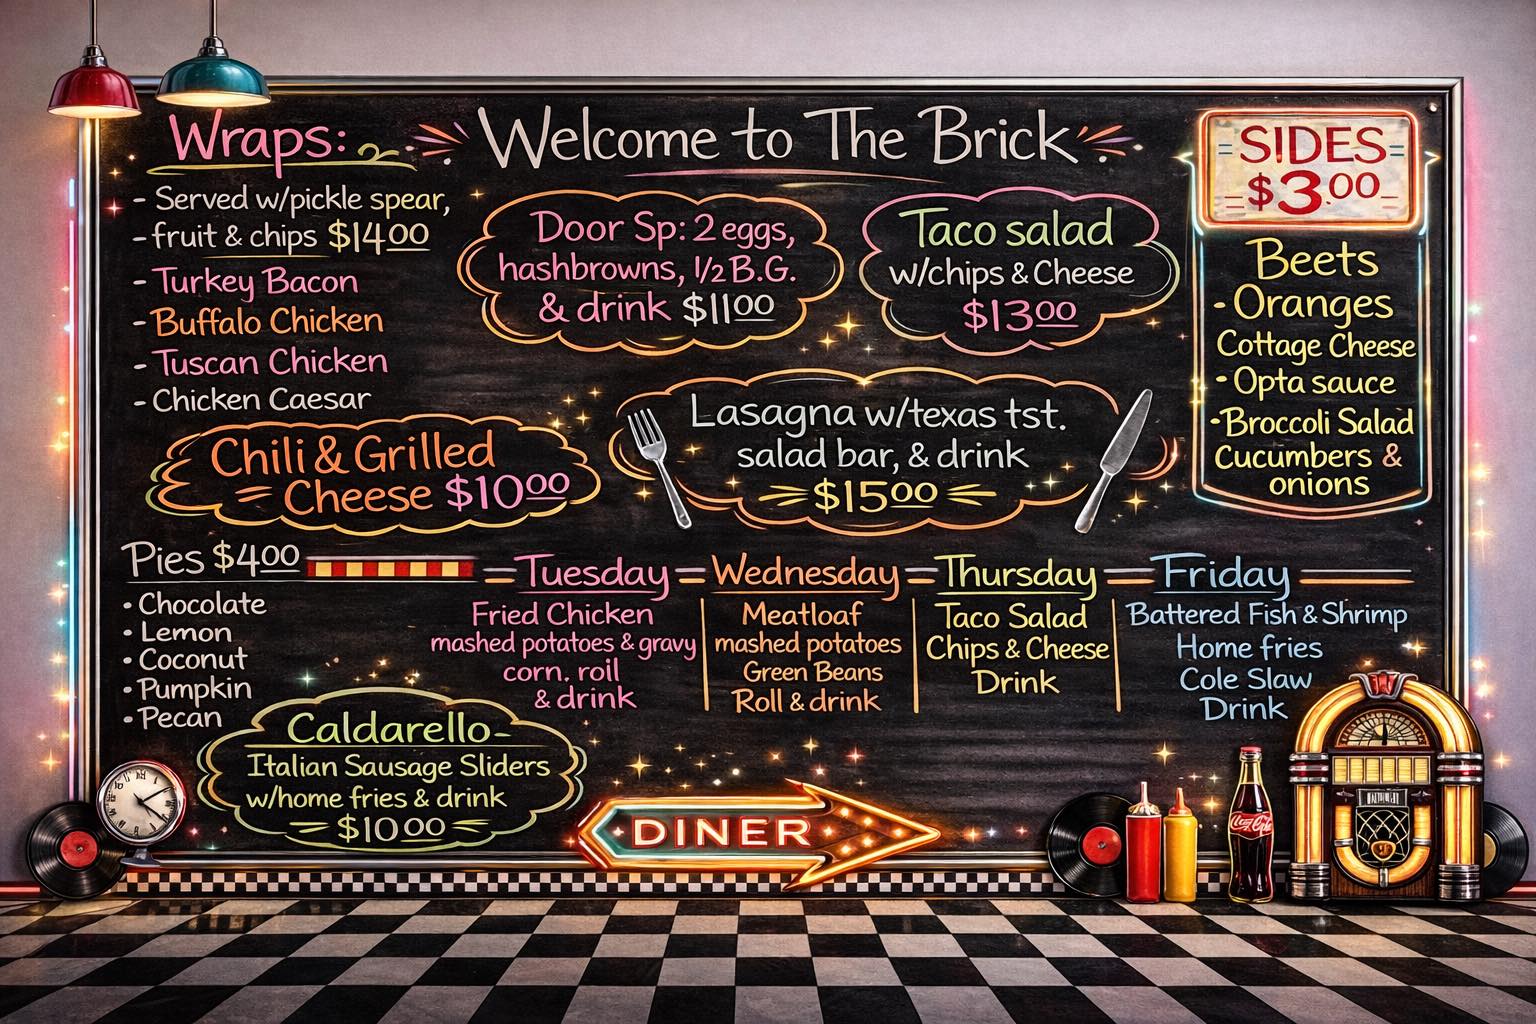 Welcome to The Brick
Wraps:
- Served w/pickle spear,
- fruit & chips $14.00
- Turkey Bacon
- Buffalo Chicken
- Tuscan Chicken
- Chicken Caesar
Door Sp: 2 eggs,
hashbrowns, 1/2 B.G.
& drink $11.00
Taco salad
w/chips & Cheese
$13.00
SIDES
$3.00
Beets
• Oranges
Cottage Cheese
• Opta sauce
• Broccoli Salad
Cucumbers &
onions
Chili & Grilled
= Cheese $10.00
Lasagna w/texas tst.
salad bar, & drink
$15.00
Pies $4.00
• Chocolate
• Lemon
• Coconut
• Pumpkin
• Pecan
Tuesday
Fried Chicken
mashed potatoes & gravy
corn. roil
& drink
Wednesday
Meatloaf
mashed potatoes
Green Beans
Roll & drink
Thursday
Taco Salad
Chips & Cheese
Drink
Friday
Battered Fish & Shrimp
Home fries
Cole Slaw
Drink
Caldarello-
Italian Sausage Sliders
w/home fries & drink
$10.00
DINER
Coca-Cola